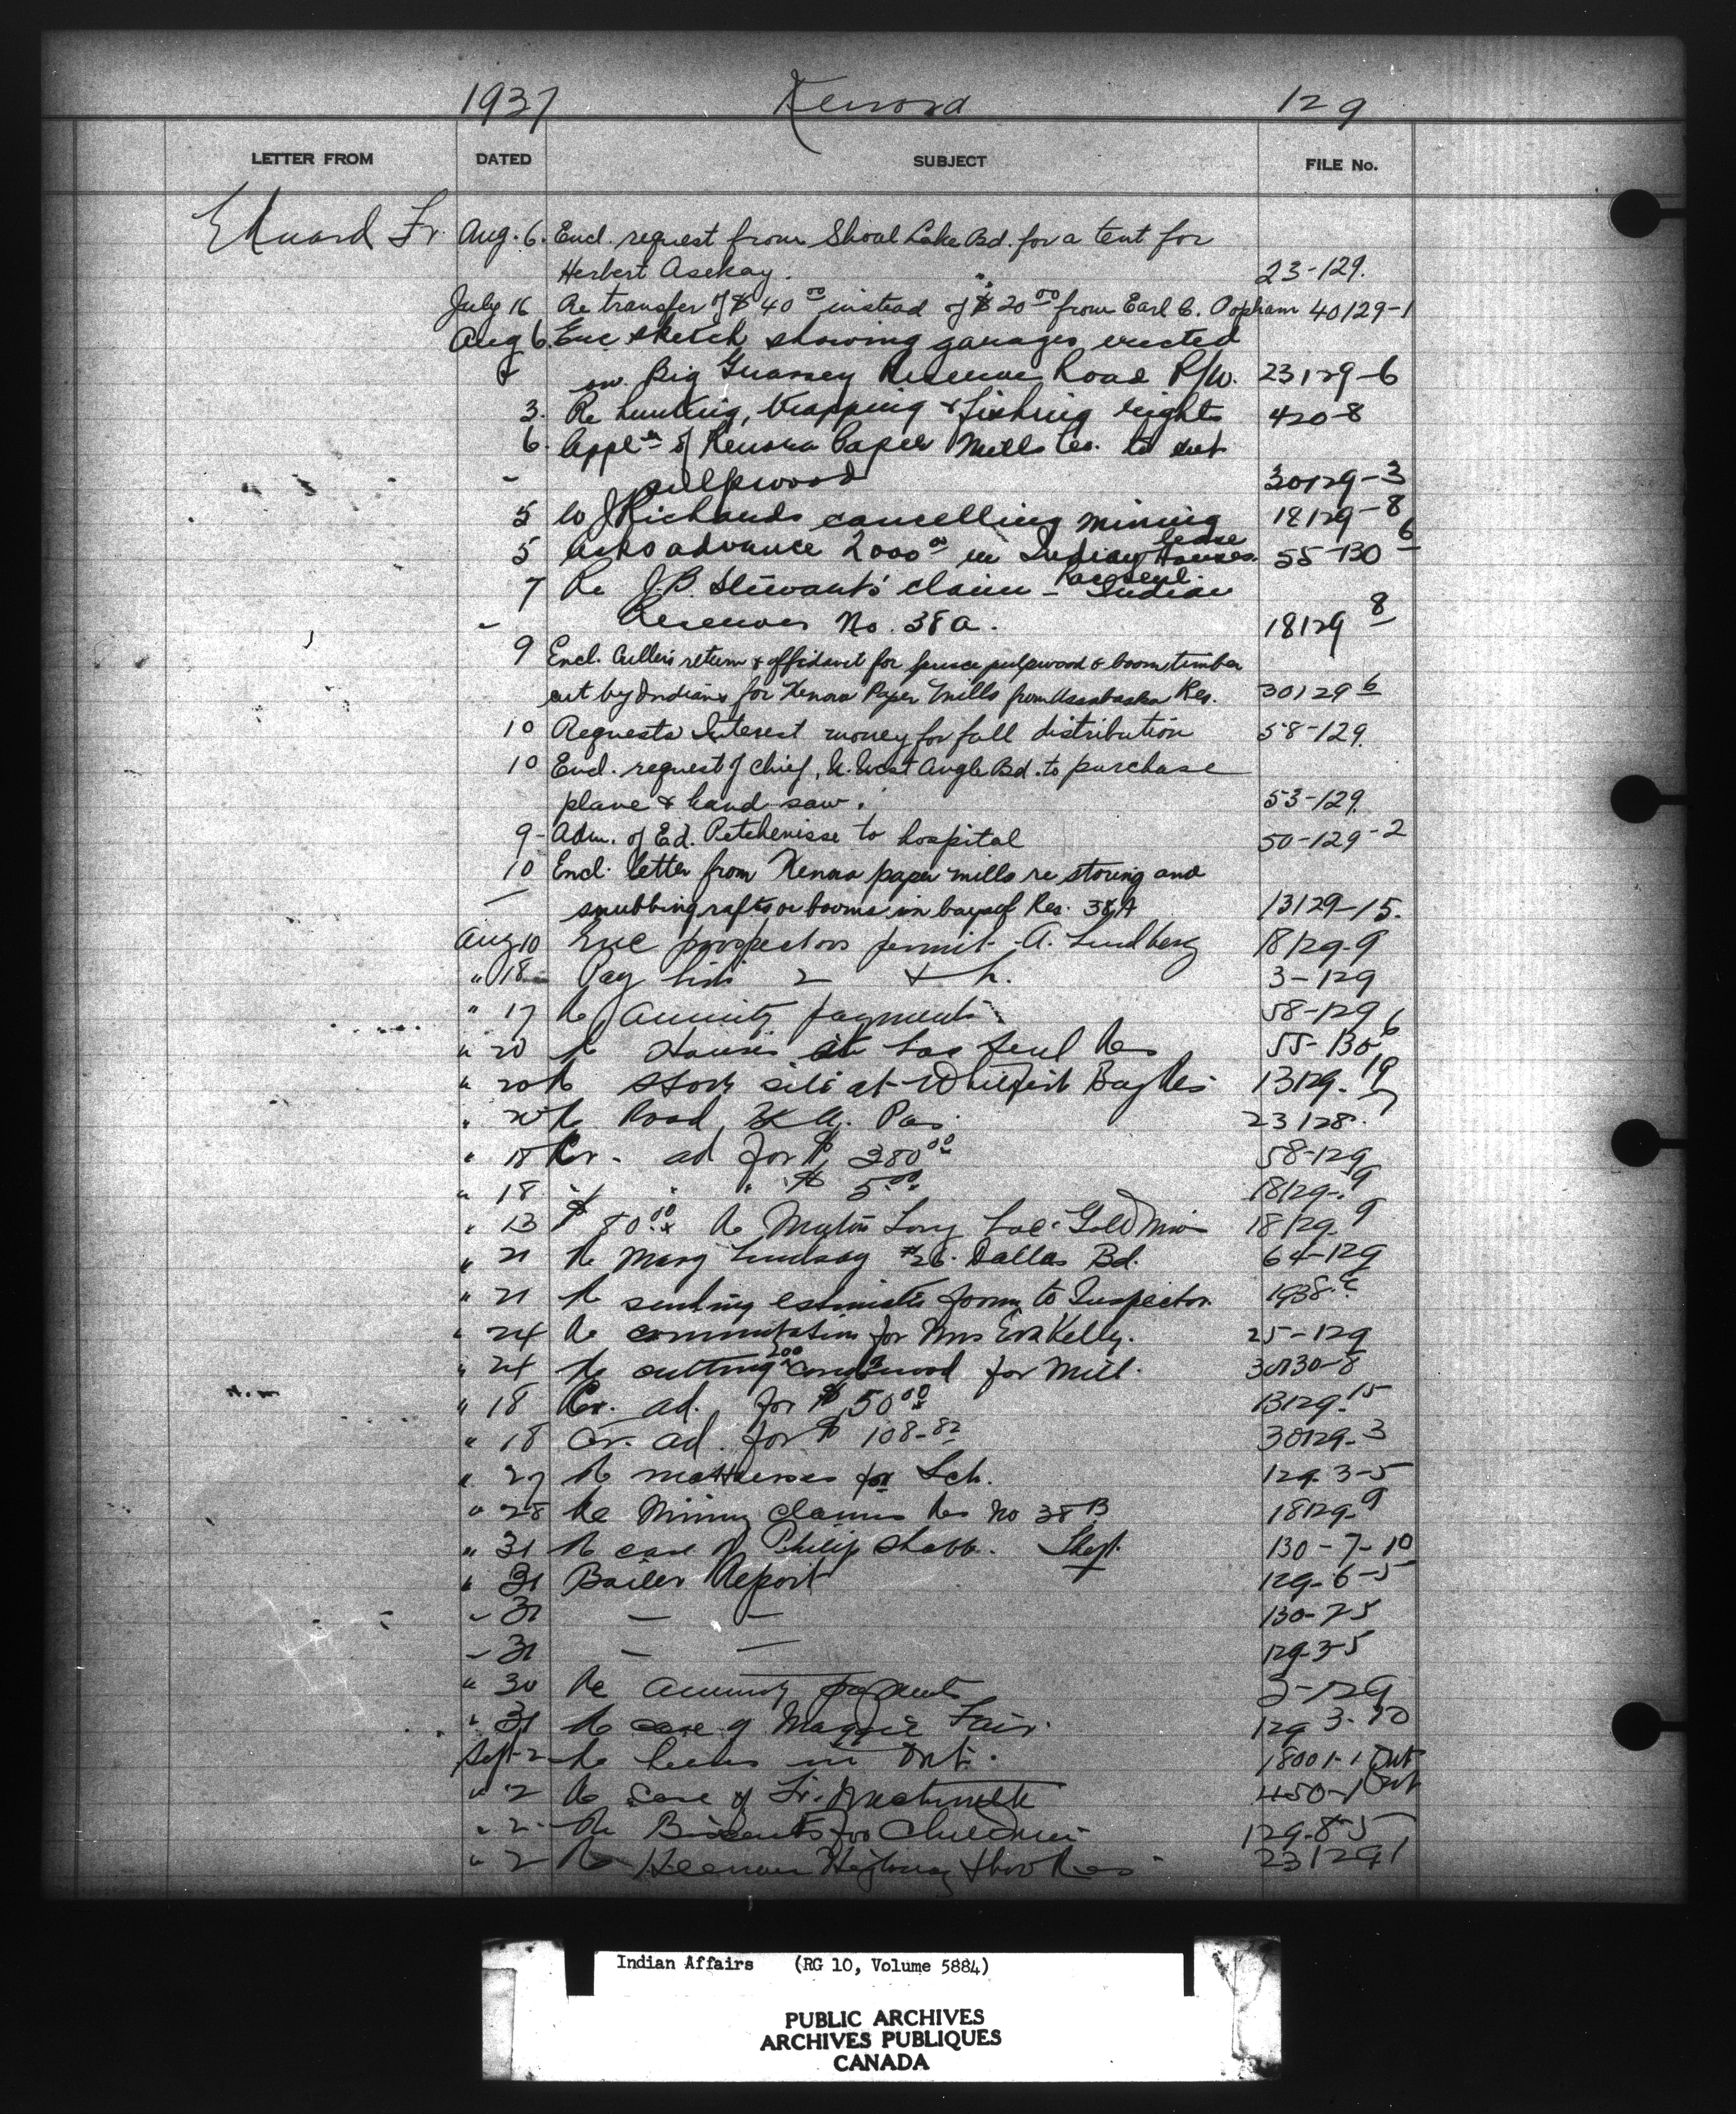 1937 Kenora 129
LETTER FROM DATED SUBJECT FILE No.
Edward Fr. Aug. 6. Encl. request from Shoal Lake Bd. for a tent for
Herbert Asekay. 23-129.
July 16 Re transfer of $40 00 instead of $20 00 from Earl C. Popham 40129-1
Aug 6. Enc sketch showing garages erected
on Big Reserve Road R/W. 23129-6
3. Re hunting, trapping & fishing rights 420-8
6. Appl'n of Kenora Paper Mills Co. to cut
pulpwood 30129-3
5 W J Richards cancelling mining lease 18129-8
5 Asks advance 2000 00 in Indian Houses. 55-130 6
Lac Seul.
7 Re J.B. Stewart's claim - Indian
Reserves No. 38A. 18129 8
9 Encl. Culler's return & affidavit for spruce pulpwood & boom timber
cut by Indians for Kenora Paper Mills from Assabaska Res. 30129 6
10 Requests Interest money for fall distribution 58-129.
10 Encl. request of Chief, N. West Angle Bd. to purchase
plane & hand saw. 53-129.
9- Adm. of Ed. Petchenisse to hospital 50-129-2
10 Encl. letter from Kenora paper mills re storing and
snubbing rafts or booms in bays of Res. 38A 13129-15.
Aug 10 Enc prospectors permit - A. Lundberg 18129-9
" 18 Pay lists 2 & h. 3-129
" 17 Re Annuity payments. 58-129
" 20 Re Houses at Lac Seul Res 55-130 6
" 20 Re store site at Whitefish Bay Res 13129-19
" 20 Re Road 23128-7
" 18 Cr. ad for $ 380 00 58-129
" 18 " " " $ 5.00 18129-9
" 13 $ 80.00 Re Long Lac Gold Mine 18129-9
" 21 Re Mary Lindsay #26. Dallas Bd. 64-129
" 21 Re sending estimates form to Inspector.
" 24 Re commutation for Mrs Eva Kelly. 25-129
" 24 Re cutting 200 cords wood for Mill. 30130-8
" 18 Cr. ad. for $ 50 00 13129-15
" 18 Cr. ad. for $ 108.82 30129-3
" 27 Re mattresses for Sch. 129-3-5
" 28 Re Mining claims Res No 38 B 18129-9
" 31 Re case of Philip Shabb. 130-7-10
" 31 Boiler Report 129-6-5
" 31 — — 130-7-5
" 31 — — 129-3-5
" 30 Re Annuity payments 3-129
" 31 Re case of Maggie Fair. 129-3-10
Sept-2 Re in Ont. 18001-1 Ont
" 2 Re Case of Fr. 450-1 Ont
" 2 Re Biscuits for Children 129-8-5
" 2 Re Heenan Highway thro Res 23129-1
Indian Affairs (RG 10, Volume 5884)
PUBLIC ARCHIVES
ARCHIVES PUBLIQUES
CANADA